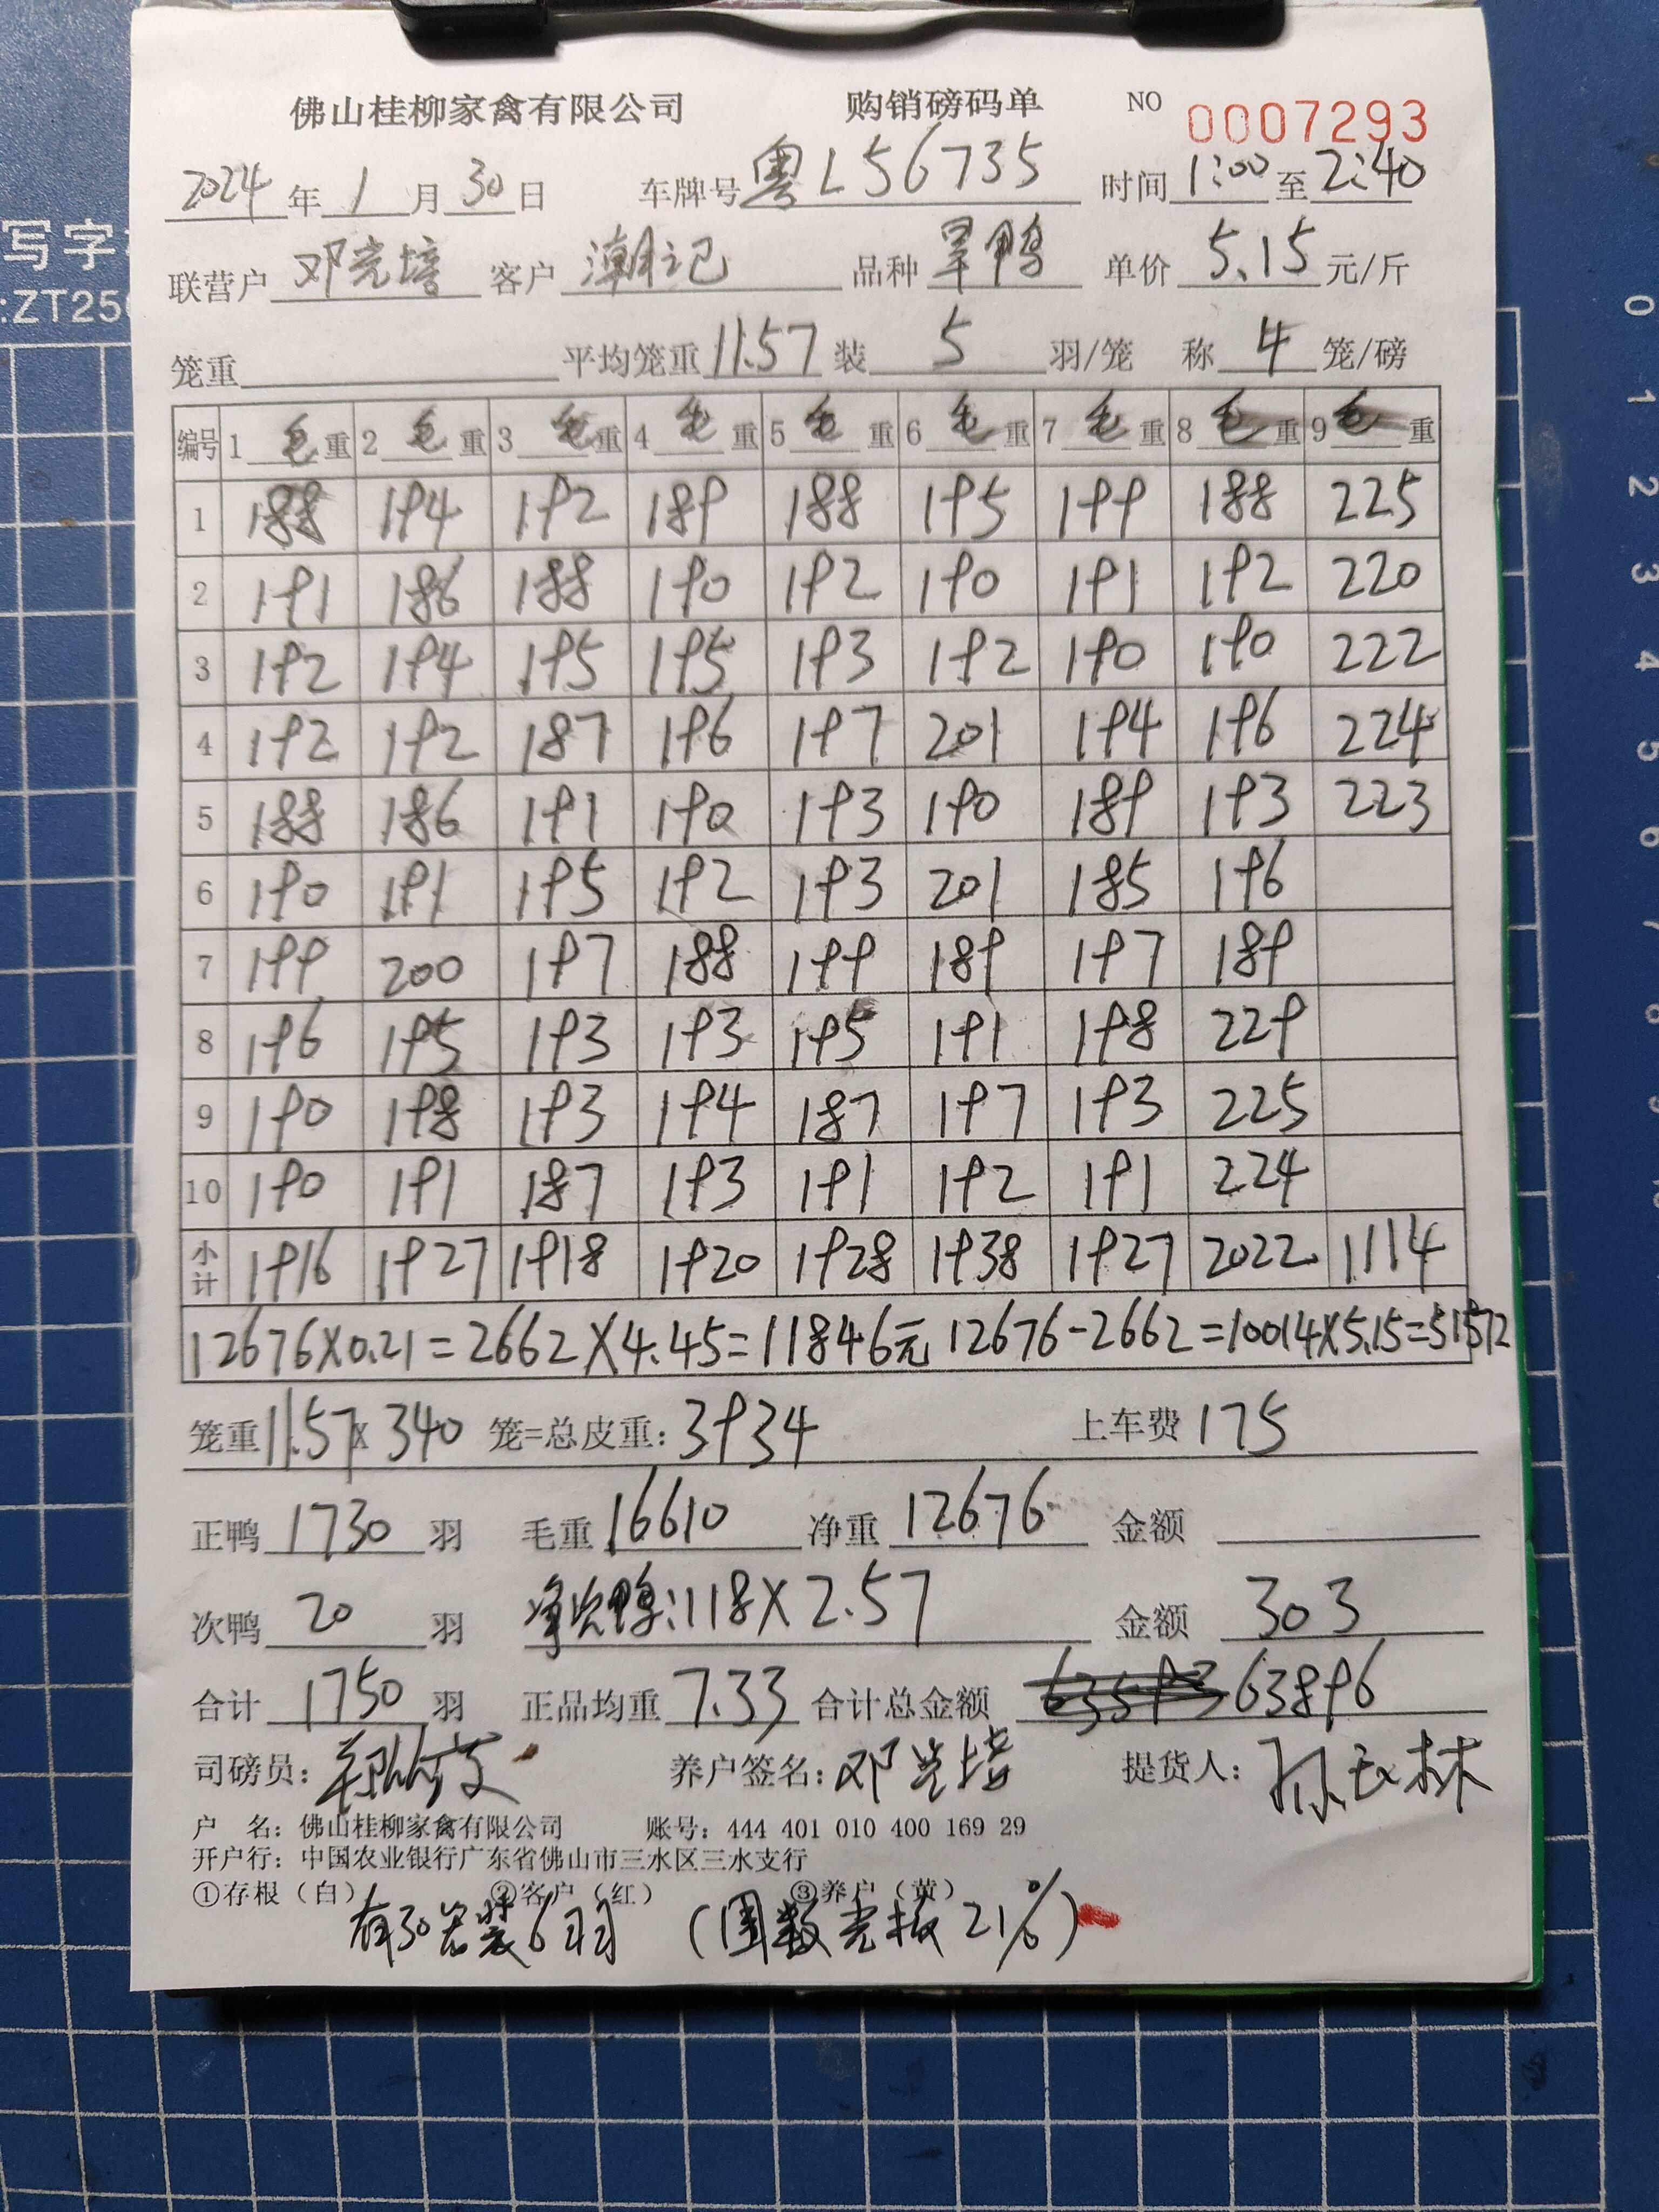 佛山桂柳家禽有限公司 购销磅码单 NO 0007293
2024年1月30日 车牌号粤L56735 时间1:00至2:40
联营户 邓光培 客户 潮记 品种 旱鸭 单价 5.15 元/斤
笼重 平均笼重 11.57 装 5 羽/笼 称 4 笼/磅
编号 1 毛重 2 毛重 3 毛重 4 毛重 5 毛重 6 毛重 7 毛重 8 毛重 9 毛重
1 188 194 192 189 188 195 199 188 225
2 191 186 188 190 192 190 191 192 220
3 192 194 195 195 193 192 190 190 222
4 192 192 187 196 197 201 194 196 224
5 188 186 191 190 193 190 189 193 223
6 190 191 195 192 193 201 185 196
7 199 200 197 188 199 189 197 189
8 196 195 193 193 195 191 198 229
9 190 198 193 194 187 197 193 225
10 190 191 187 193 191 192 191 224
小计 1916 1927 1918 1920 1928 1938 1927 2022 1114
12676×0.21=2662×4.45=11846元 12676-2662=10014×5.15=51572
笼重 11.57×340 笼=总皮重: 3934 上车费 175
正鸭 1730 羽 毛重 16610 净重 12676 金额
次鸭 20 羽 净次鸭:118×2.57 金额 303
合计 1750 羽 正品均重 7.33 合计总金额 63896
司磅员: 养户签名: 邓光培 提货人: 林
户 名: 佛山桂柳家禽有限公司 账号: 444 401 010 400 169 29
开户行: 中国农业银行广东省佛山市三水区三水支行
①存根(白) ②客户(红) ③养户(黄)
有30笼装6羽 (周数光板21%)